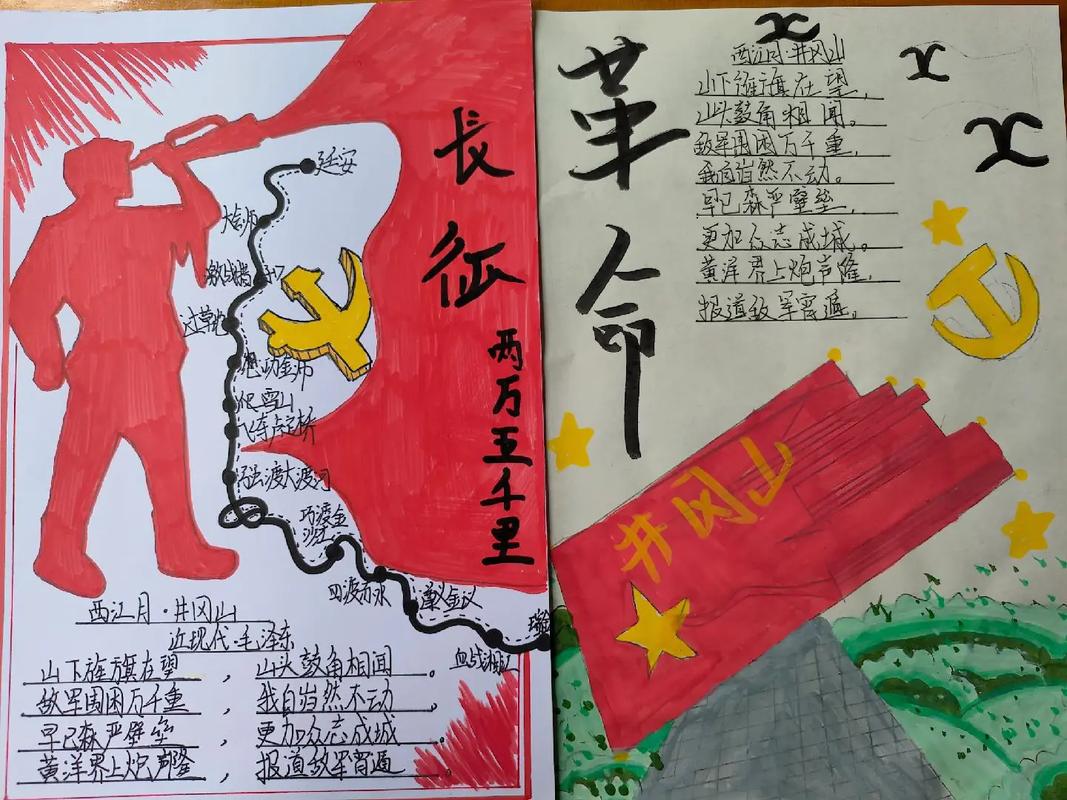 长征
两万五千里
延安
大会师
过草地
爬雪山
飞夺泸定桥
强渡大渡河
巧渡金
沙江
四渡赤水
遵义会议
血战湘江
西江月·井冈山
近现代·毛泽东
山下旌旗在望，山头鼓角相闻。
敌军围困万千重，我自岿然不动。
早已森严壁垒，更加众志成城。
黄洋界上炮声隆，报道敌军宵遁。
革命
西江月·井冈山
山下旌旗在望，
山头鼓角相闻。
敌军围困万千重，
我自岿然不动。
早已森严壁垒，
更加众志成城。
黄洋界上炮声隆，
报道敌军宵遁。
井冈山